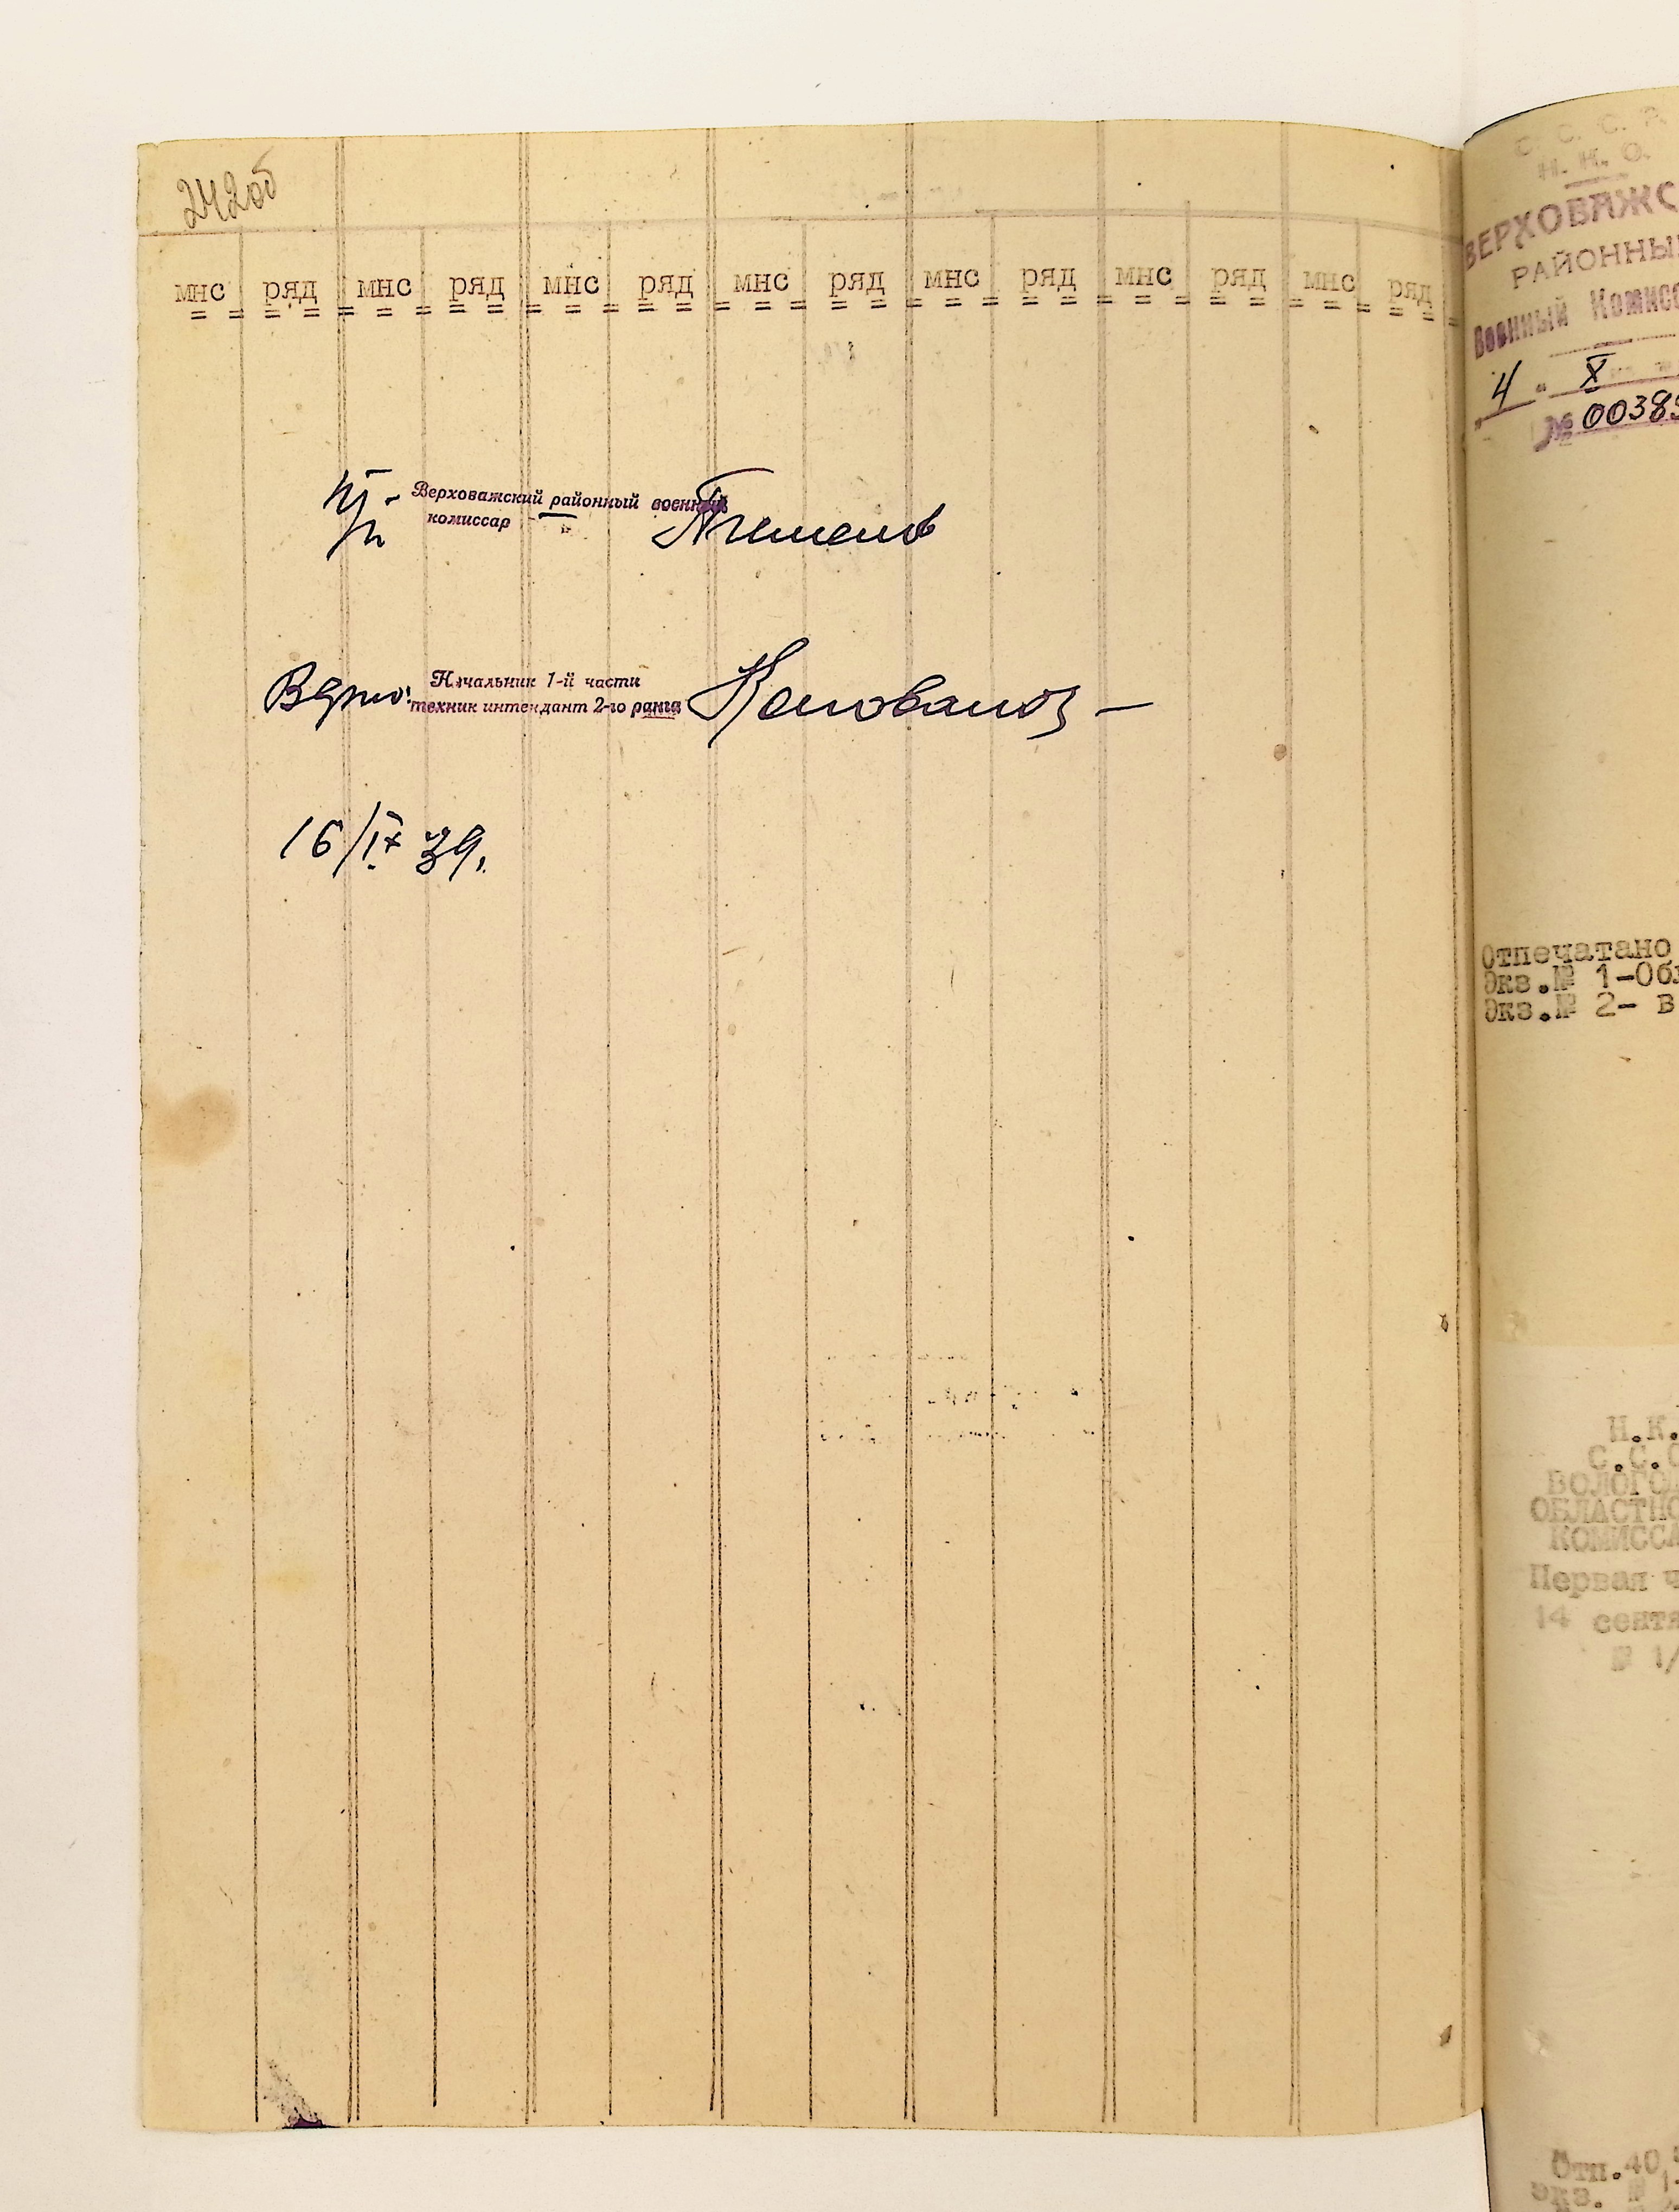 242об
мнс ряд мнс ряд мнс ряд мнс ряд мнс ряд мнс ряд мнс ряд
Верховажский районный военный
комиссар
Верно: Начальник 1-й части
техник интендант 2-го ранга
16/IX 39.
С. С. С. Р.
Н. К. О.
ВЕРХОВАЖС
РАЙОННЫ
Военный Комисс
4 " X
№ 0038
Отпечатано
Экз.№ 1-Об
Экз.№ 2- В
Н.К.
С.С.
ВОЛОГО
ОБЛАСТНО
КОМИССА
Первая ч
14 сентя
№ 1/
Отп.40
экз. №